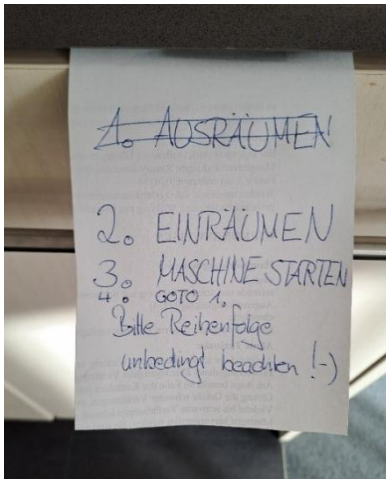 1. AUSRÄUMEN
2. EINRÄUMEN
3. MASCHINE STARTEN
4. GOTO 1.
Bitte Reihenfolge
unbedingt beachten !-)